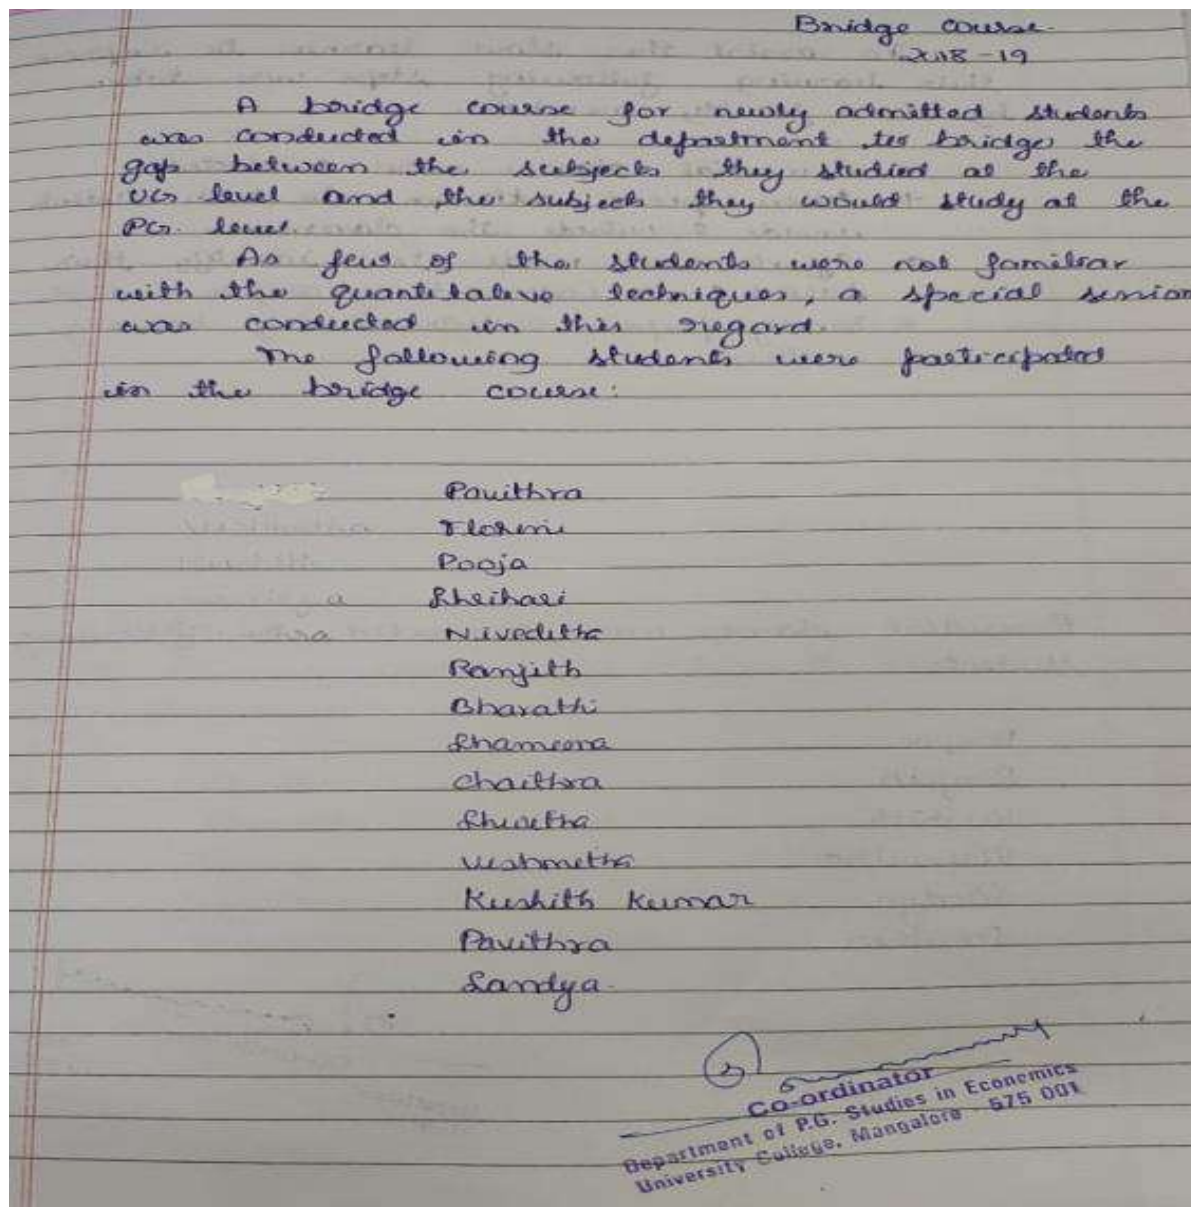 Bridge course.
2018-19
A bridge course for newly admitted students
was conducted in the department to bridge the
gap between the subjects they studied at the
UG level and the subjects they would study at the
PG level.
As few of the students were not familiar
with the quantitative techniques, a special
was conducted in this regard.
The following students were participated
in the bridge course:
Pavithra
Pooja
Shrihari
Niveditha
Ranjith
Bharathi
Shameena
Chaithra
Shwetha
Kushith Kumar
Pavithra
Sandya
Co-ordinator
Department of P.G. Studies in Economics
University College, Mangalore - 575 001